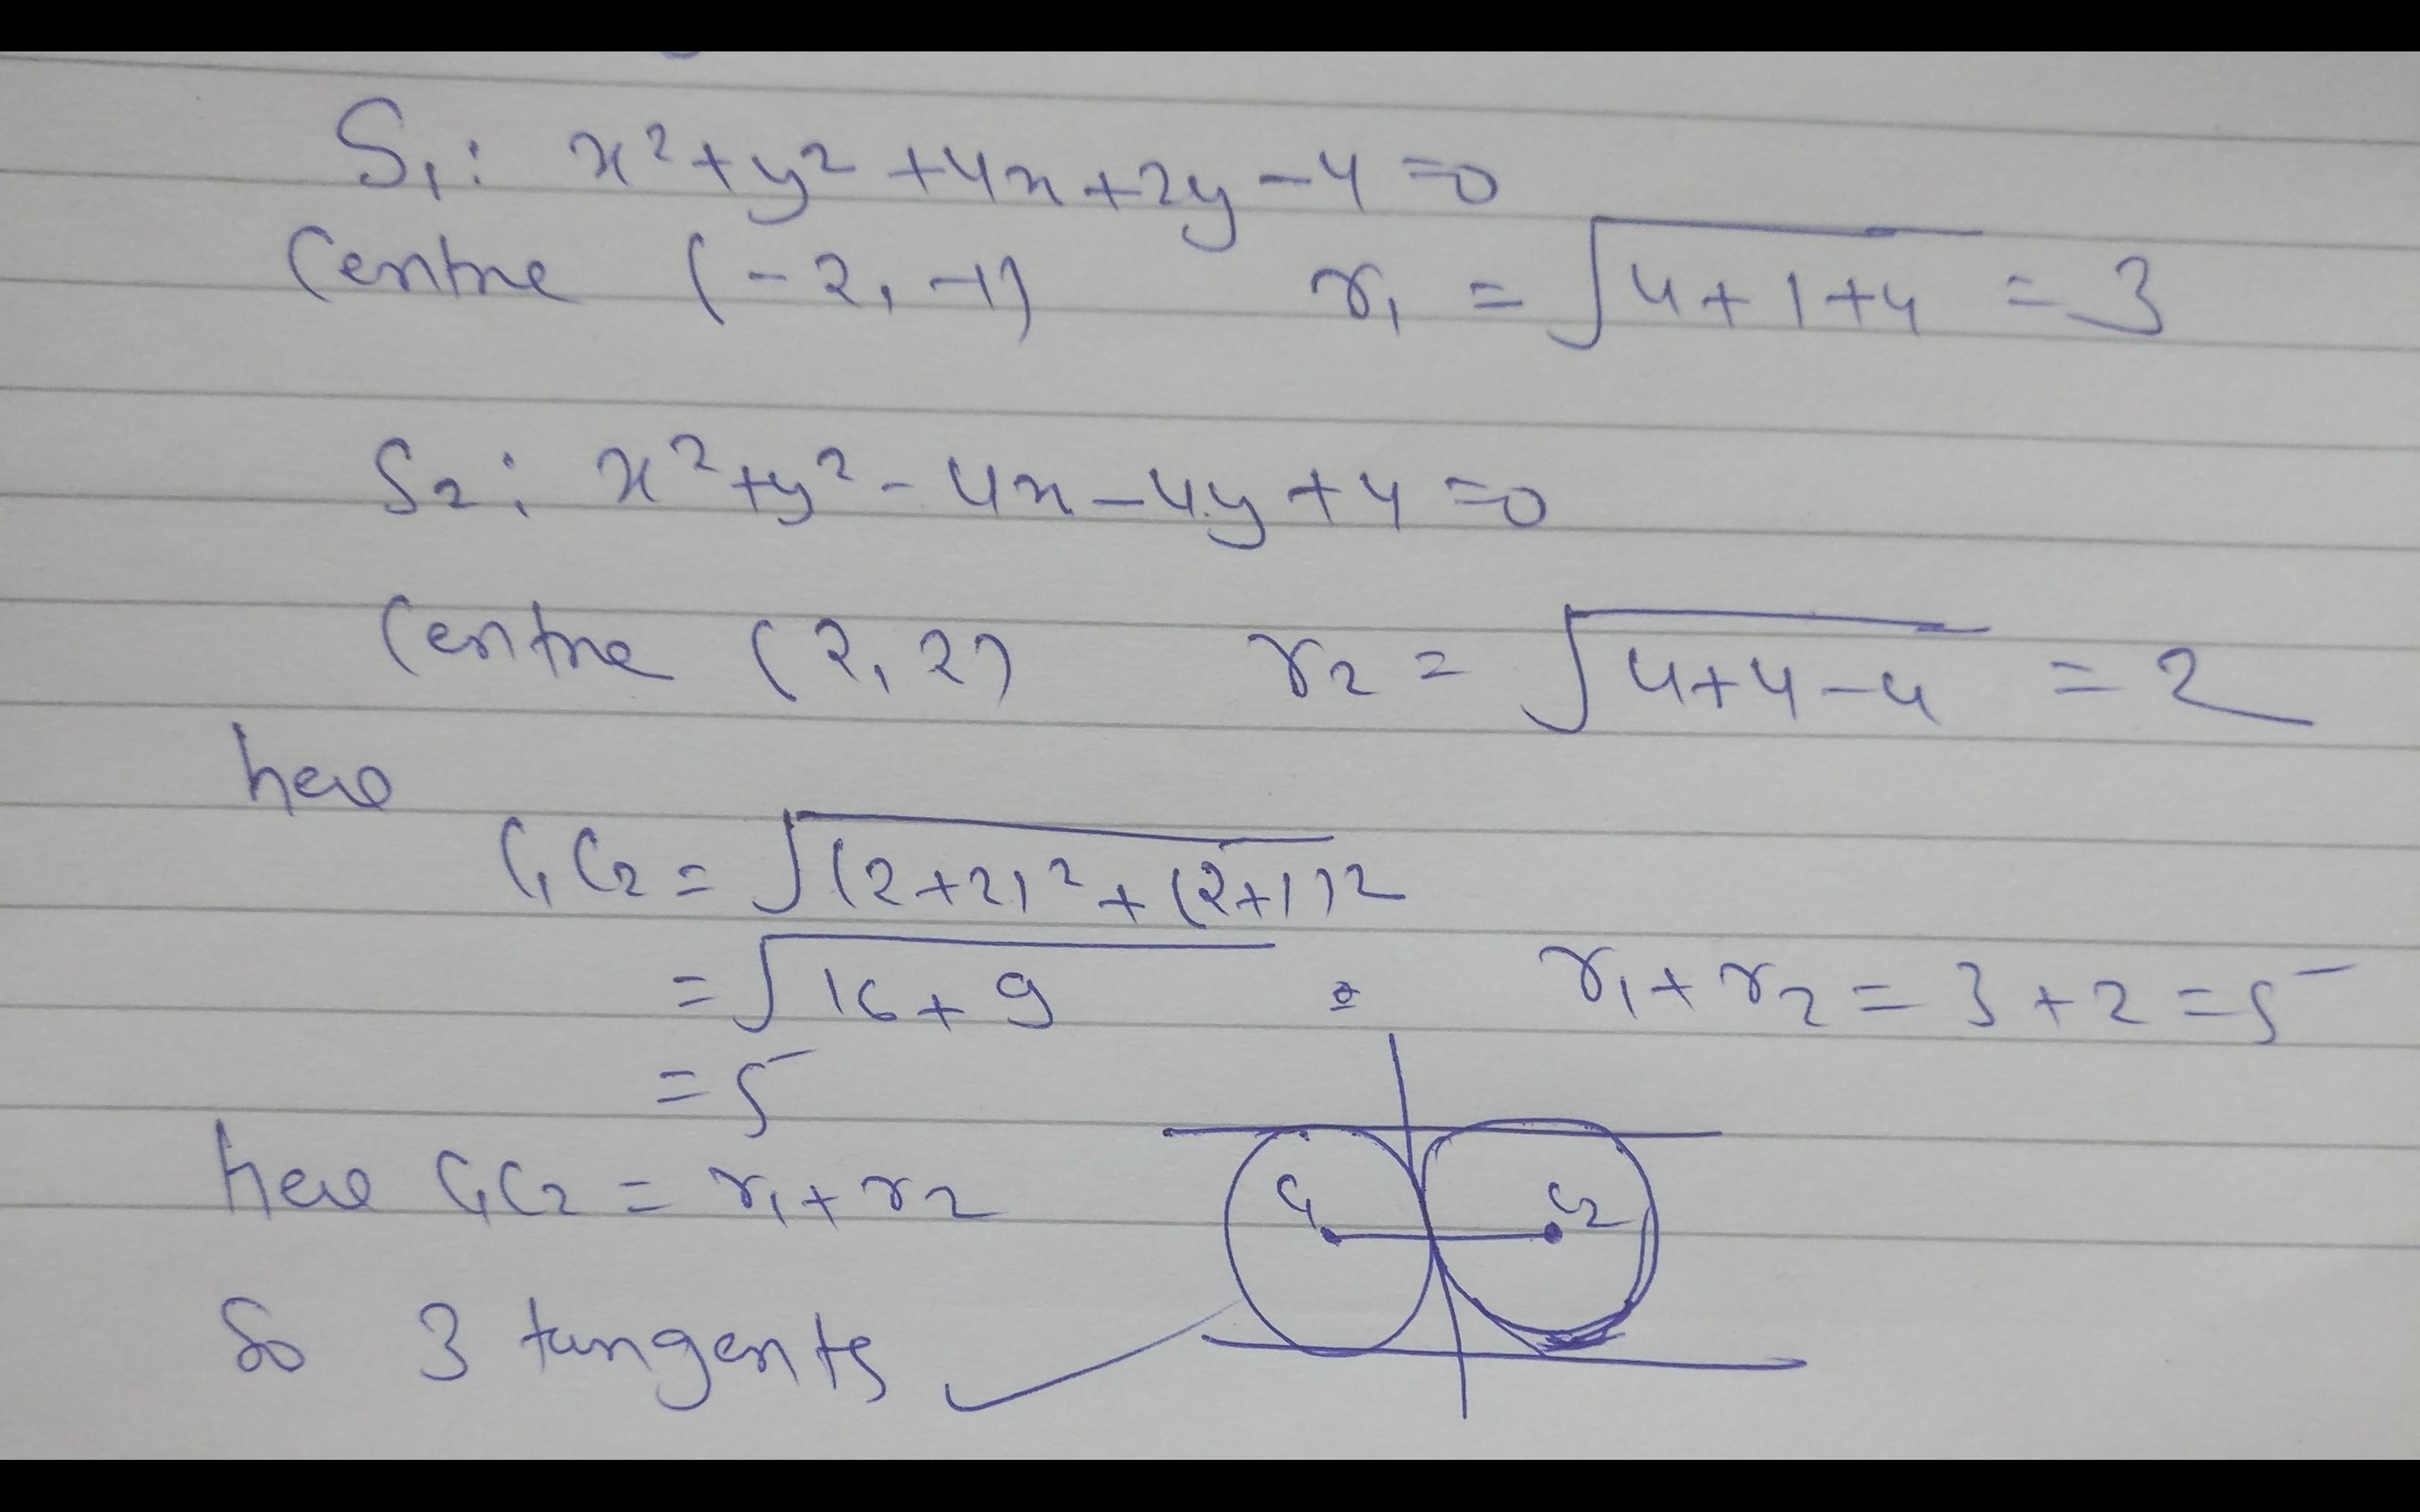 S₁: x²+y²+4x+2y-4=0
Centre (-2,-1) r₁ = √4+1+4 = 3
S₂: x²+y²-4x-4y+4=0
Centre (2,2) r₂ = √4+4-4 = 2
here
C₁C₂ = √(2+2)²+(2+1)²
= √16+9 r₁+r₂=3+2=5
= 5
here C₁C₂ = r₁+r₂
C₁ C₂
So 3 tangents